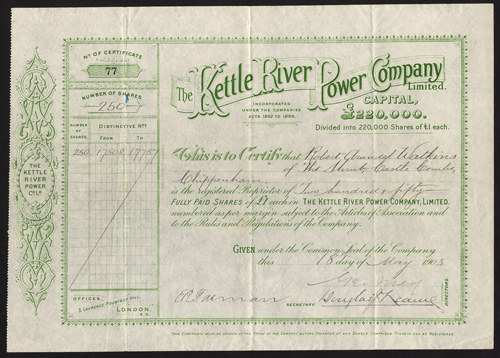 No OF CERTIFICATE
77
NUMBER OF SHARES
250
NUMBER OF SHARES. DISTINCTIVE Nos
FROM TO
250 17508 17757
THE KETTLE RIVER POWER Co Ld
OFFICES,
2, LAURENCE POUNTNEY HILL,
LONDON.
E.C.
The Kettle River Power Company Limited.
INCORPORATED
UNDER THE COMPANIES
ACTS 1862 TO 1898.
CAPITAL,
£220,000.
Divided into 220,000 Shares of £1 each.
This is to Certify that Robert Watkins
of The Castle Combe,
Chippenham
is the registered Proprietor of Two hundred & fifty
FULLY PAID SHARES of £1 each in THE KETTLE RIVER POWER COMPANY, LIMITED,
numbered as per margin subject to the Articles of Association and
to the Rules and Regulations of the Company.
GIVEN under the Common Seal of the Company
this 18 day of May 1903
SECRETARY
DIRECTORS